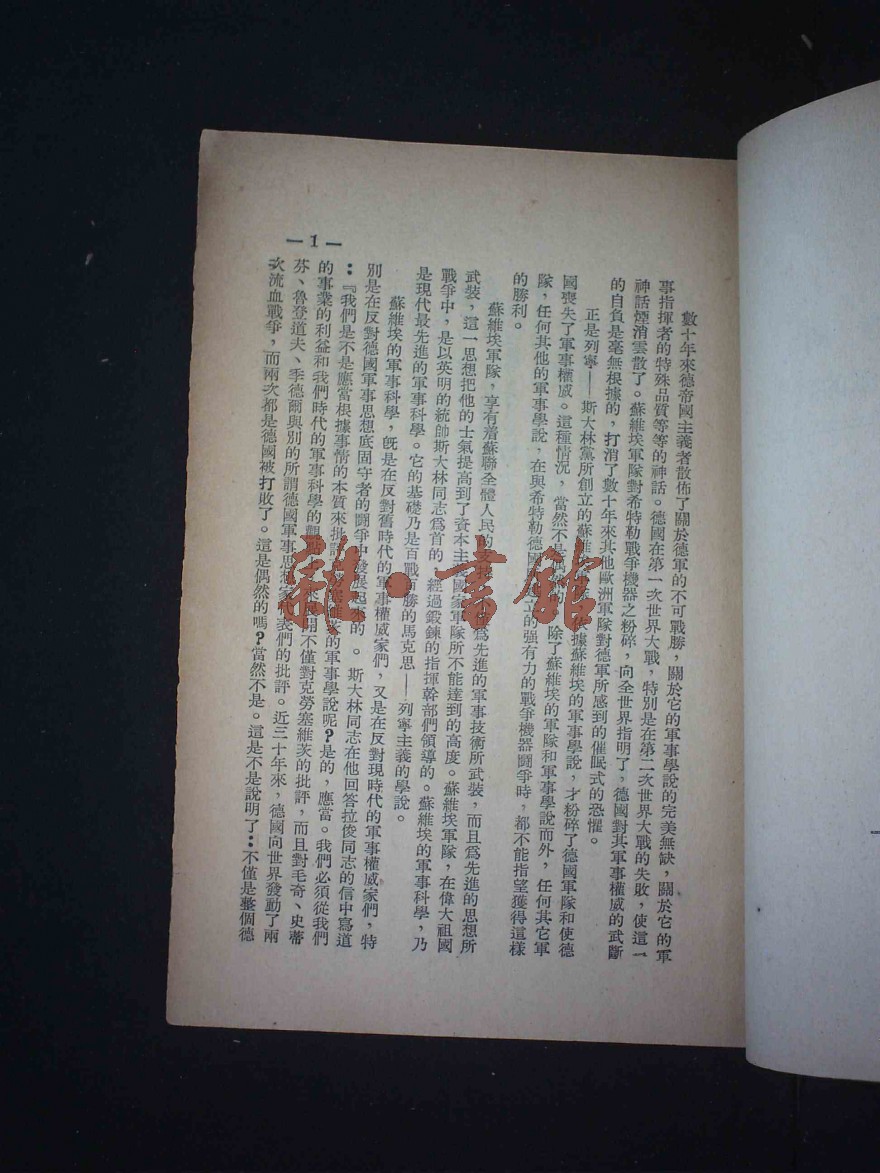 數十年來德帝國主義者散佈了關於德軍的不可戰勝，關於它的軍事學說的完美無缺，關於它的軍
事指揮者的特殊品質等等的神話。德國在第一次世界大戰，特別是在第二次世界大戰的失敗，使這一
神話煙消雲散了。蘇維埃軍隊對希特勒戰爭機器之粉碎，向全世界指明了，德國對其軍事權威的武斷
的自負是毫無根據的，打消了數十年來其他歐洲軍隊對德軍所感到的催眠式的恐懼。
正是列寧——斯大林黨所創立的蘇維 依據蘇維埃的軍事學說，才粉碎了德國軍隊和使德
國喪失了軍事權威。這種情況，當然不是 除了蘇維埃的軍隊和軍事學說而外，任何其它軍
隊，任何其他的軍事學說，在與希特勒德國 立的強有力的戰爭機器鬪爭時，都不能指望獲得這樣
的勝利。
蘇維埃軍隊，享有着蘇聯全體人民的支持 爲先進的軍事技術所武裝，而且爲先進的思想所
武裝，這一思想把他的士氣提高到了資本主 國家軍隊所不能達到的高度。蘇維埃軍隊，在偉大祖國
戰爭中，是以英明的統帥斯大林同志爲首的，經過鍛鍊的指揮幹部們領導的。蘇維埃的軍事科學，乃
是現代最先進的軍事科學。它的基礎乃是百戰百勝的馬克思——列寧主義的學說。
蘇維埃的軍事科學，旣是在反對舊時代的軍事權威家們，又是在反對現時代的軍事權威家們，特
別是在反對德國軍事思想底固守者的鬪爭中發展起來的。斯大林同志在他回答拉俊同志的信中寫道
：『我們是不是應當根據事情的本質來批評 勞塞維茨的軍事學說呢？是的，應當。我們必須從我們
的事業的利益和我們時代的軍事科學的觀點 來展開不僅對克勞塞維茨的批評，而且對毛奇、史蒂
芬、魯登道夫、季德爾與別的所謂德國軍事思想家代表們的批評。近三十年來，德國向世界發動了兩
次流血戰爭，而兩次都是德國被打敗了。這是偶然的嗎？當然不是。這是不是說明了：不僅是整個德
— 1 —
雜·書館